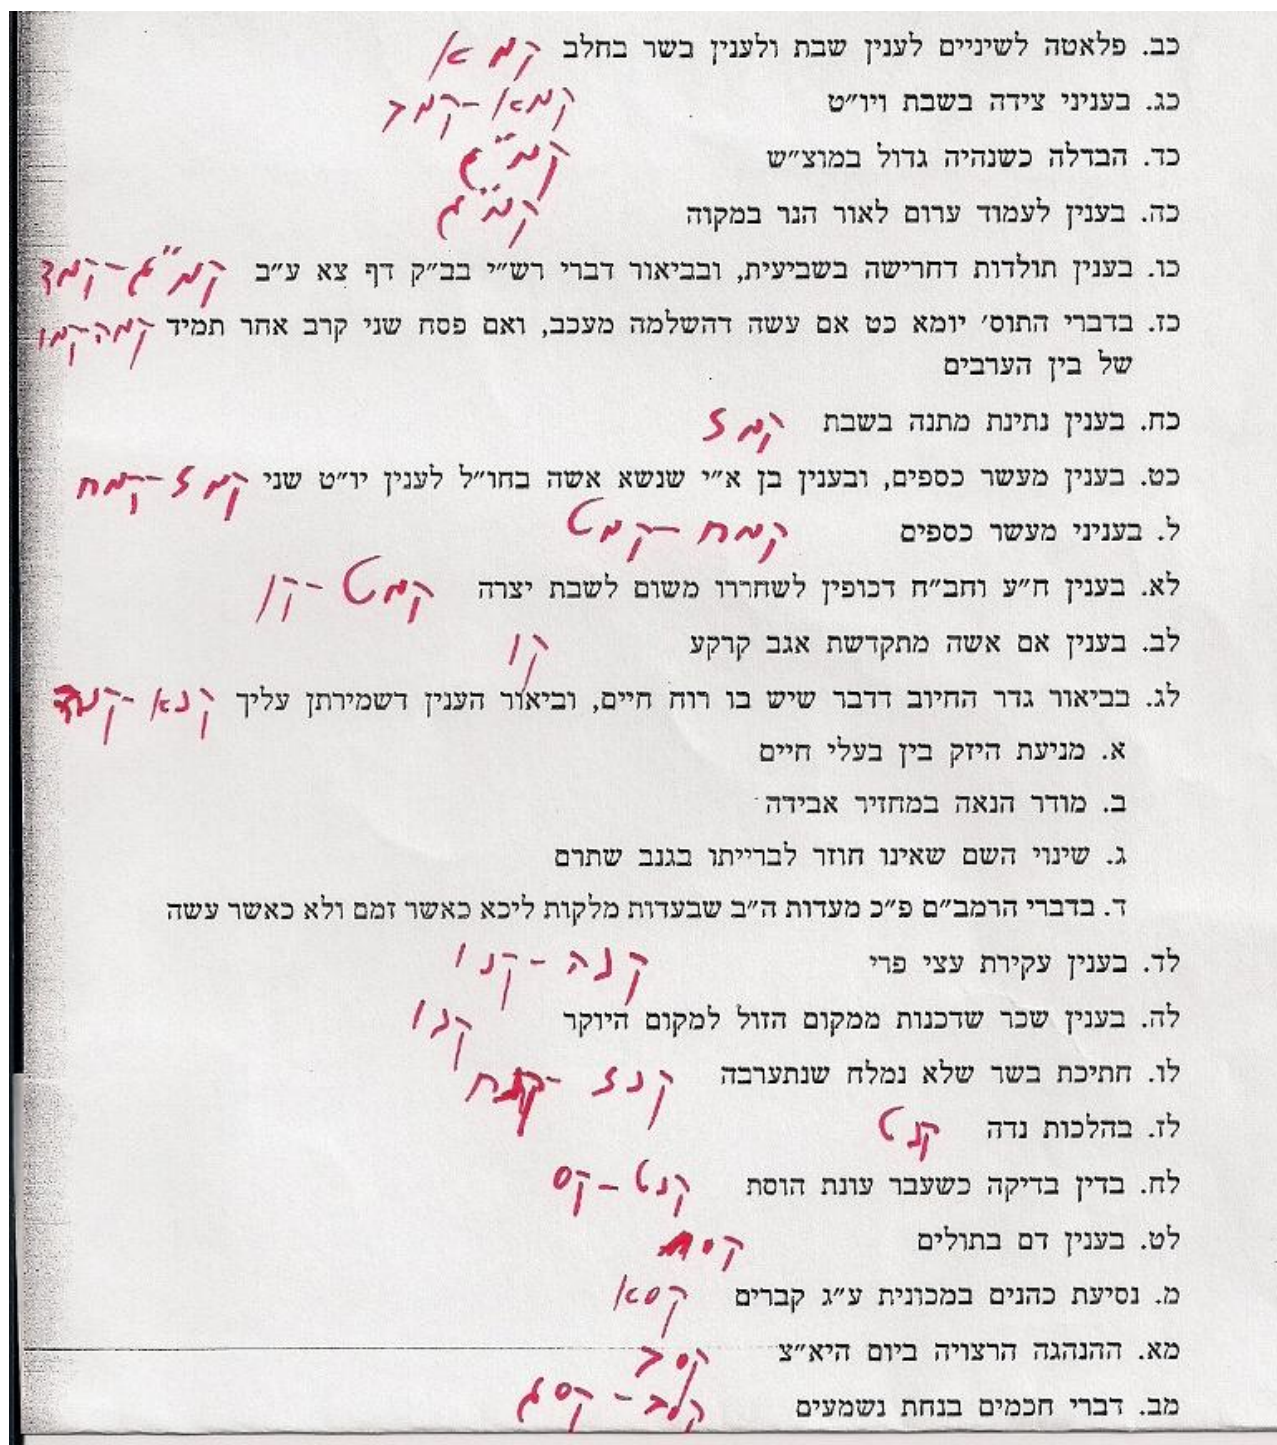 כב. פלאטה לשיניים לענין שבת ולענין בשר בחלב קמא
כג. בעניני צידה בשבת ויו״ט קמא-קמב
כד. הבדלה כשנהיה גדול במוצ״ש קמ״ג
כה. בענין לעמוד ערום לאור הנר במקוה קמ״ג
כו. בענין תולדות דחרישה בשביעית, ובביאור דברי רש״י בב״ק דף צא ע״ב קמ״ג-קמד
כז. בדברי התוס׳ יומא כט אם עשה דהשלמה מעכב, ואם פסח שני קרב אחר תמיד קמה-קמו
של בין הערבים
כח. בענין נתינת מתנה בשבת קמז
כט. בענין מעשר כספים, ובענין בן א״י שנשא אשה בחו״ל לענין יו״ט שני קמז-קמח
ל. בעניני מעשר כספים קמח-קמט
לא. בענין ח״ע וחב״ח דכופין לשחררו משום לשבת יצרה קמט-קן
לב. בענין אם אשה מתקדשת אגב קרקע קן
לג. בביאור גדר החיוב דדבר שיש בו רוח חיים, וביאור הענין דשמירתן עליך קנא-קנד
א. מניעת היזק בין בעלי חיים
ב. מודר הנאה במחזיר אבידה
ג. שינוי השם שאינו חוזר לברייתו בגנב שתום
ד. בדברי הרמב״ם פ״כ מעדות ה״ב שבעדות מלקות ליכא כאשר זמם ולא כאשר עשה
לד. בענין עקירת עצי פרי קנה-קנו
לה. בענין שכר שדכנות ממקום הזול למקום היוקר קנו
לו. חתיכת בשר שלא נמלח שנתערבה קנז-קנח
לז. בהלכות נדה קנט
לח. בדין בדיקה כשעבר עונת הוסת קנט-קס
לט. בענין דם בתולים
מ. נסיעת כהנים במכונית ע״ג קברים קסא
מא. ההנהגה הרצויה ביום היא״צ קסב
מב. דברי חכמים בנחת נשמעים קסב-קסג